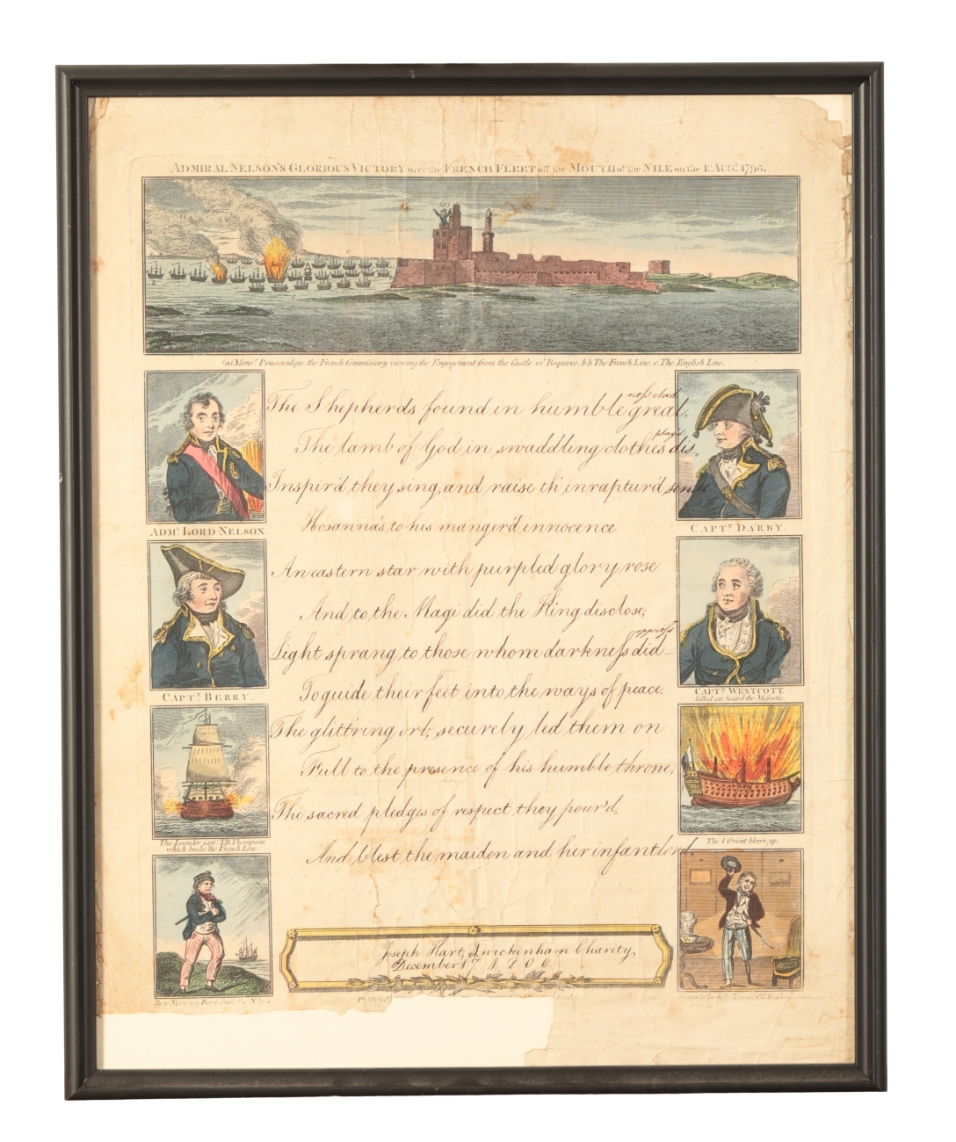 ADMIRAL NELSON'S GLORIOUS VICTORY over the FRENCH FLEET off the MOUTH of the NILE on the 1st AUGt. 1798.
the French Commissary viewing the Engagement from the Castle of Bequires. b b The French Line. c. The English Line.
ness clad
The Shepherds found in humble great.
plays
The lamb of God in swaddling clothes dis,
Inspir'd they sing, and raise th' inraptur'd sense
Hosanna's to his manger'd innocence
ADMl. LORD NELSON.
CAPTn. DARBY.
An eastern star with purpled glory rose
And to the Magi did the King disclose,
oppress
Light sprang to those whom darkness did
To guide their feet into the ways of peace.
CAPTn. BERRY.
CAPTn. WESTCOTT.
killed on board the Majestic.
The glitt'ring orb; securely led them on
Full to the presence of his humble throne,
The sacred pledges of respect they pour'd,
And blest the maiden and her infant lord.
The Leander capt. T.B. Thompson
which broke the French Line.
The l'Orient blown up.
Joseph Hart, Twickenham Charity,
December 17 1800